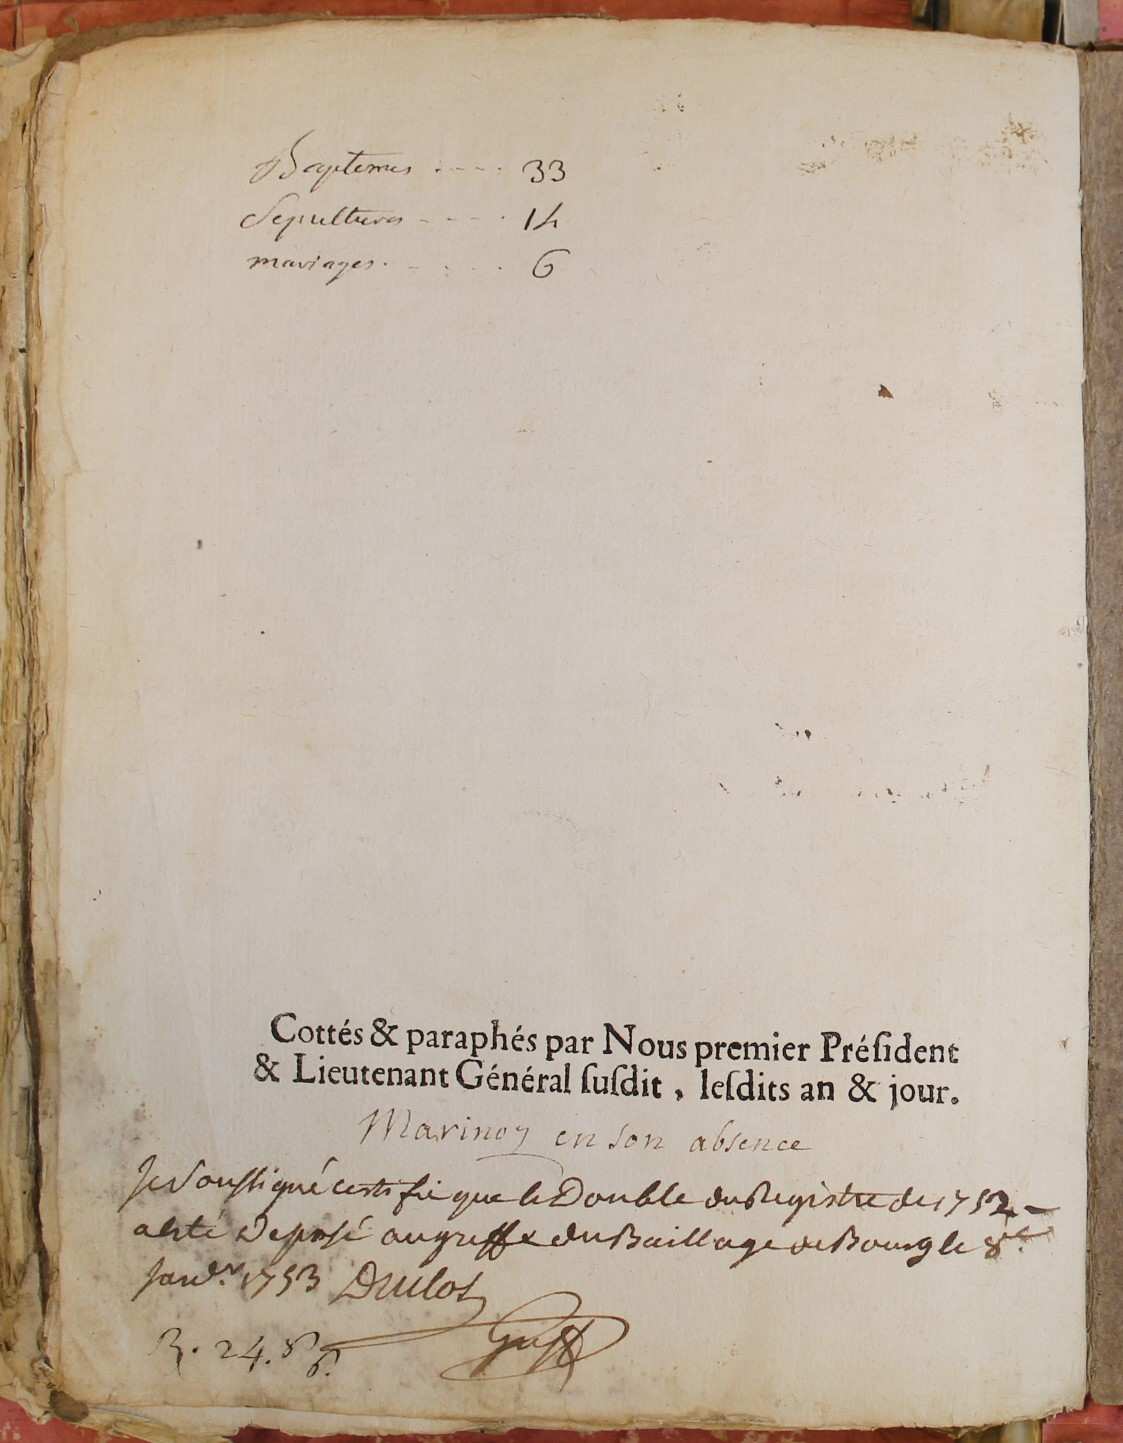 Baptemes - - - - 33
Sepultures - - - - 14
mariages - - - - 6
Cottés & paraphés par Nous premier Préſident
& Lieutenant Général ſuſdit, leſdits an & jour.
en son absence
Je Soussigné certifie que le Double du Registre de 1752
a esté Deposé au greffe du Baillage de Bourg le 8e
Janv.r 1753
R. 24. s